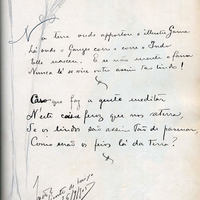 Na terra onde apportou o illustre Gama
Lá onde o Ganges corre e corre o Indo
Elle nasceu. E se não mente a fama
Nunca lá se vira outro assim tão lindo!
Caso que faz a gente meditar
N'esta coisa feroz que nos aterra,
Se os lindos são assim tão de pasmar,
Como serão os feios lá da terra?